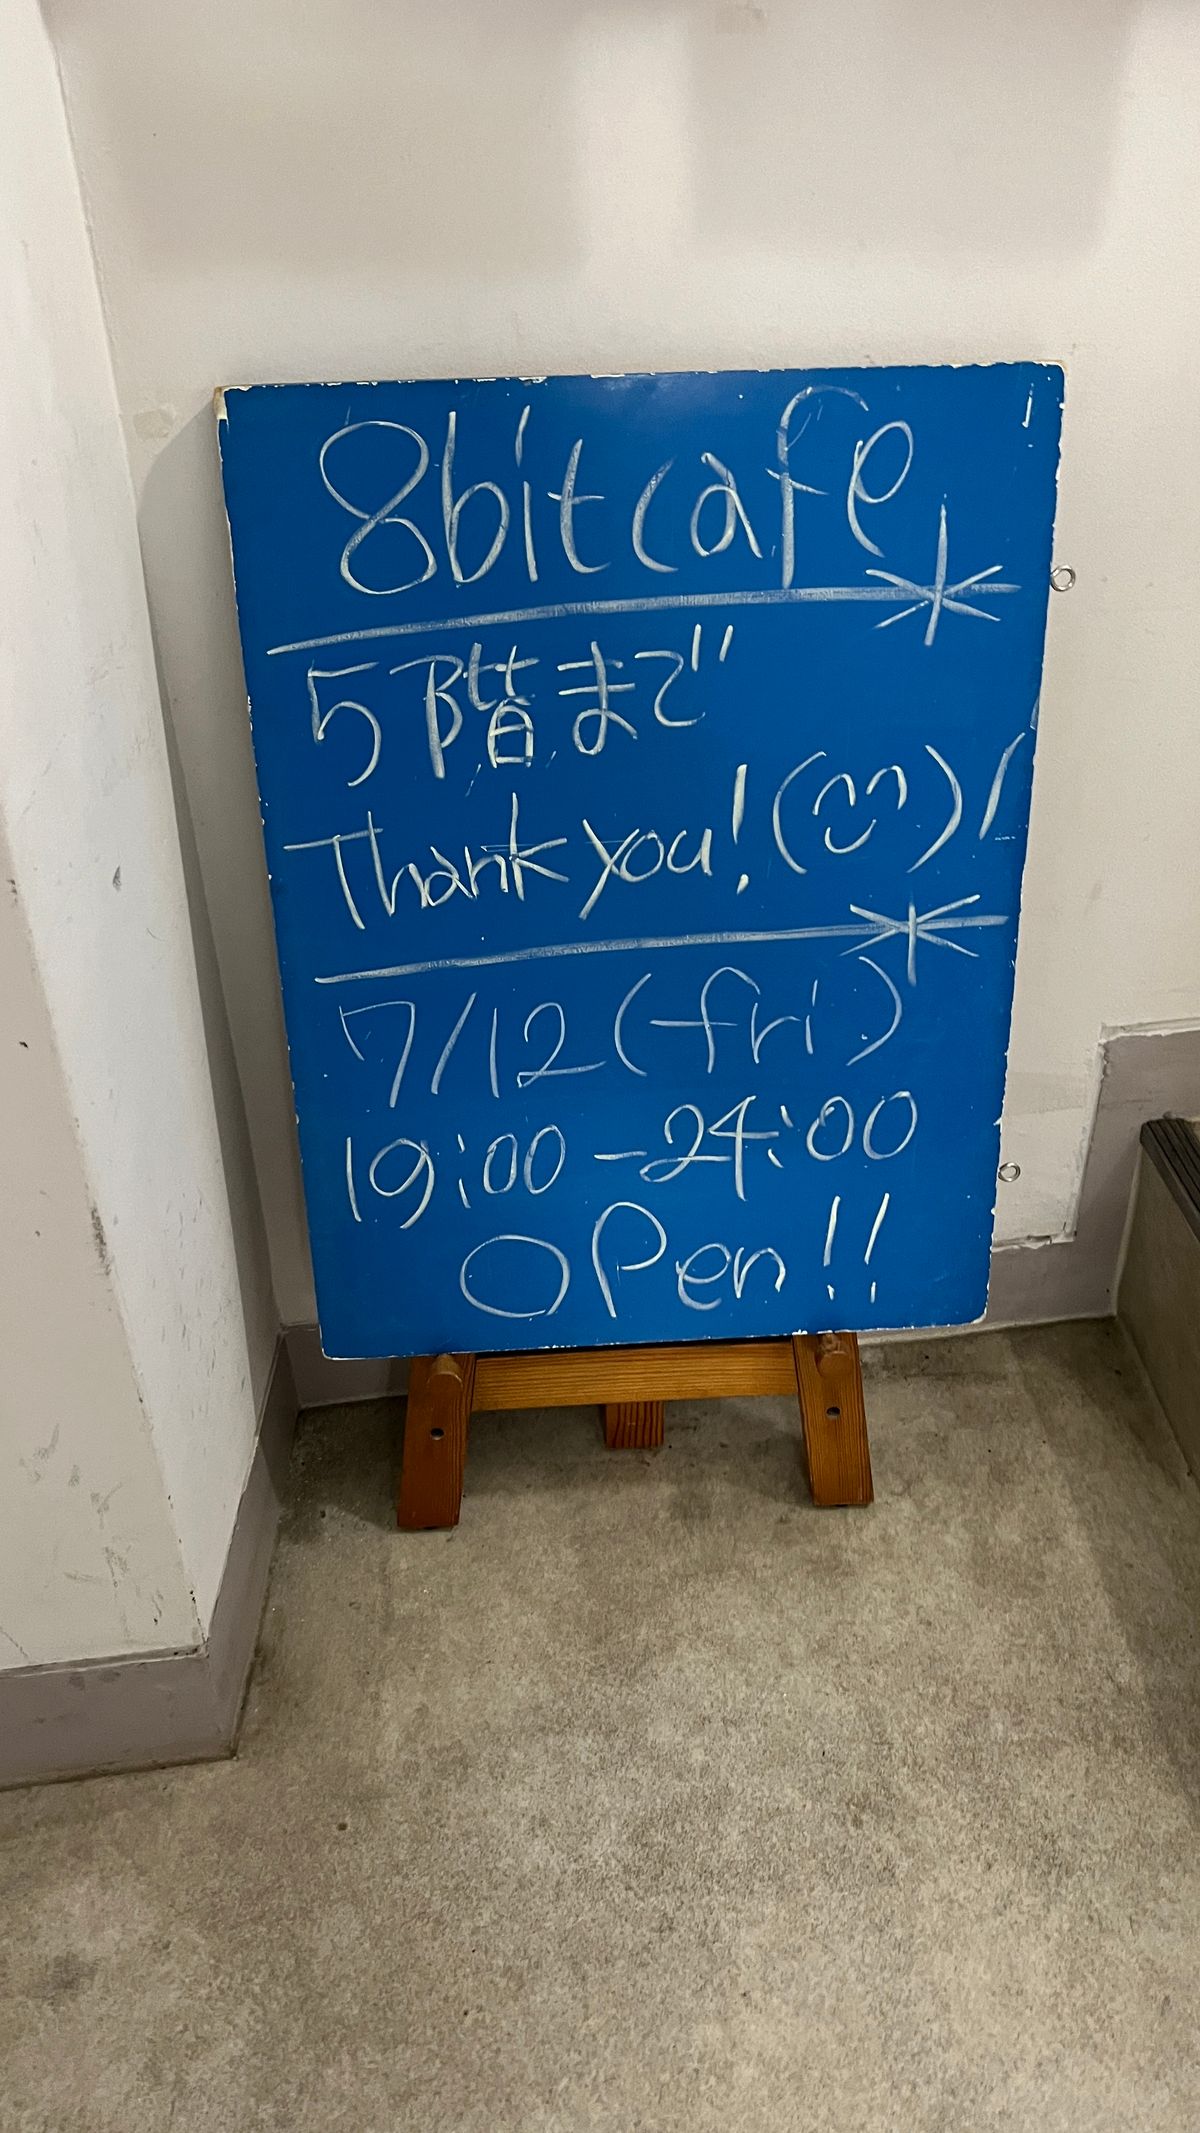 8bit cafe
5階まで
Thank you! (^‿^)/
7/12 (fri)
19:00 - 24:00
OPen!!